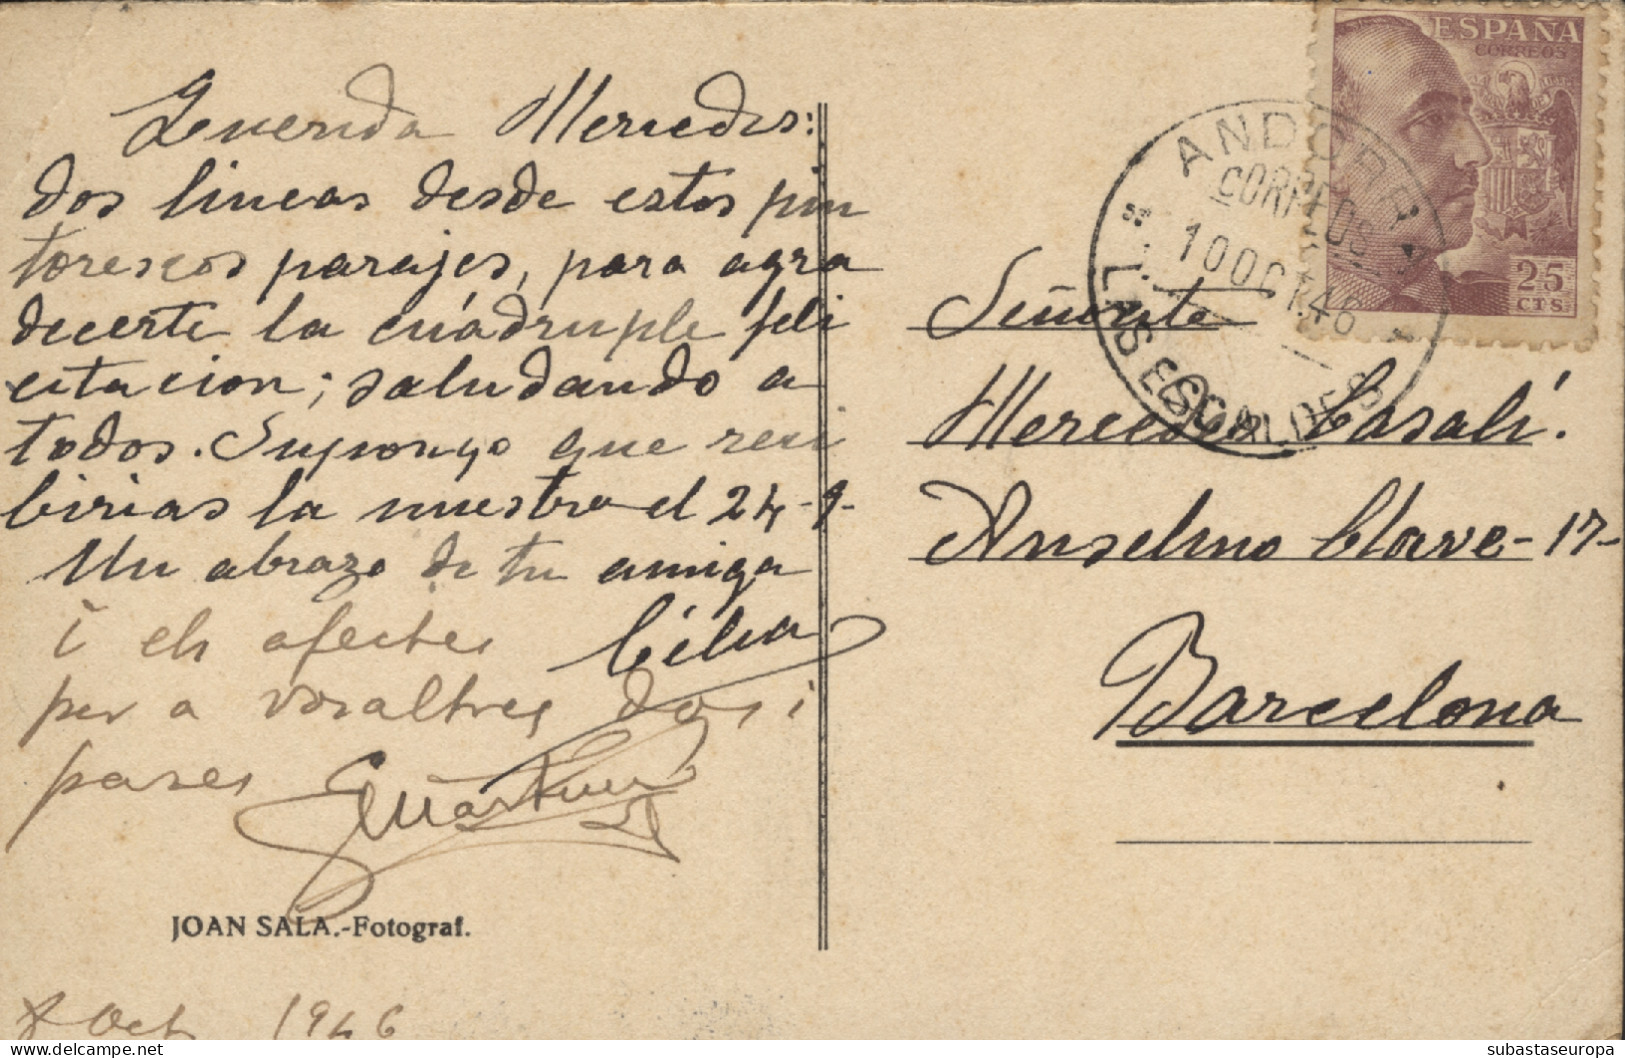 Querida Mercedes:
dos lineas desde estos pin
torescos parajes, para agra
decerte la cuádruple feli
citacion; saludando a
todos. Supongo que reci
birias la nuestra el 24-9-
Un abrazo de tu amiga
Célia
i els afectes
per a vosaltres dos i
pares
JOAN SALA.-Fotograf.
8 Oct 1946
ESPAÑA
CORREOS
25
CTS
ANDORRA
CORREOS
10 OCT. 46
LAS ESCALDES
Señorita
Mercedes Casalí.
Anselmo Clave-17-
Barcelona
subastaseuropa